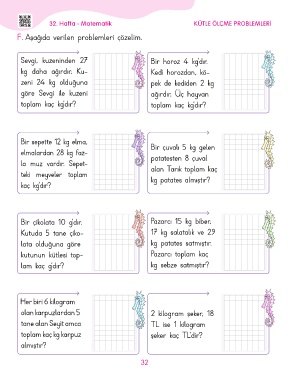 32. Hafta - Matematik
KÜTLE ÖLÇME PROBLEMLERİ
F. Aşağıda verilen problemleri çözelim.
Sevgi, kuzeninden 27
kg daha ağırdır. Ku-
zeni 24 kg olduğuna
göre Sevgi ile kuzeni
toplam kaç kg'dır?
Bir horoz 4 kg'dır.
Kedi horozdan, kö-
pek de kediden 2 kg
ağırdır. Üç hayvan
toplam kaç kg'dır?
Bir sepette 12 kg elma,
elmalardan 28 kg faz-
la muz vardır. Sepet-
teki meyveler toplam
kaç kg'dır?
Bir çuvalı 5 kg gelen
patatesten 8 çuval
alan Tarık toplam kaç
kg patates almıştır?
Bir çikolata 10 g'dır.
Kutuda 5 tane çiko-
lata olduğuna göre
kutunun kütlesi top-
lam kaç g'dır?
Pazarcı 15 kg biber,
17 kg salatalık ve 29
kg patates satmıştır.
Pazarcı toplam kaç
kg sebze satmıştır?
Her biri 6 kilogram
olan karpuzlardan 5
tane alan Seyit amca
toplam kaç kg karpuz
almıştır?
2 kilogram şeker, 18
TL ise 1 kilogram
şeker kaç TL'dir?
32